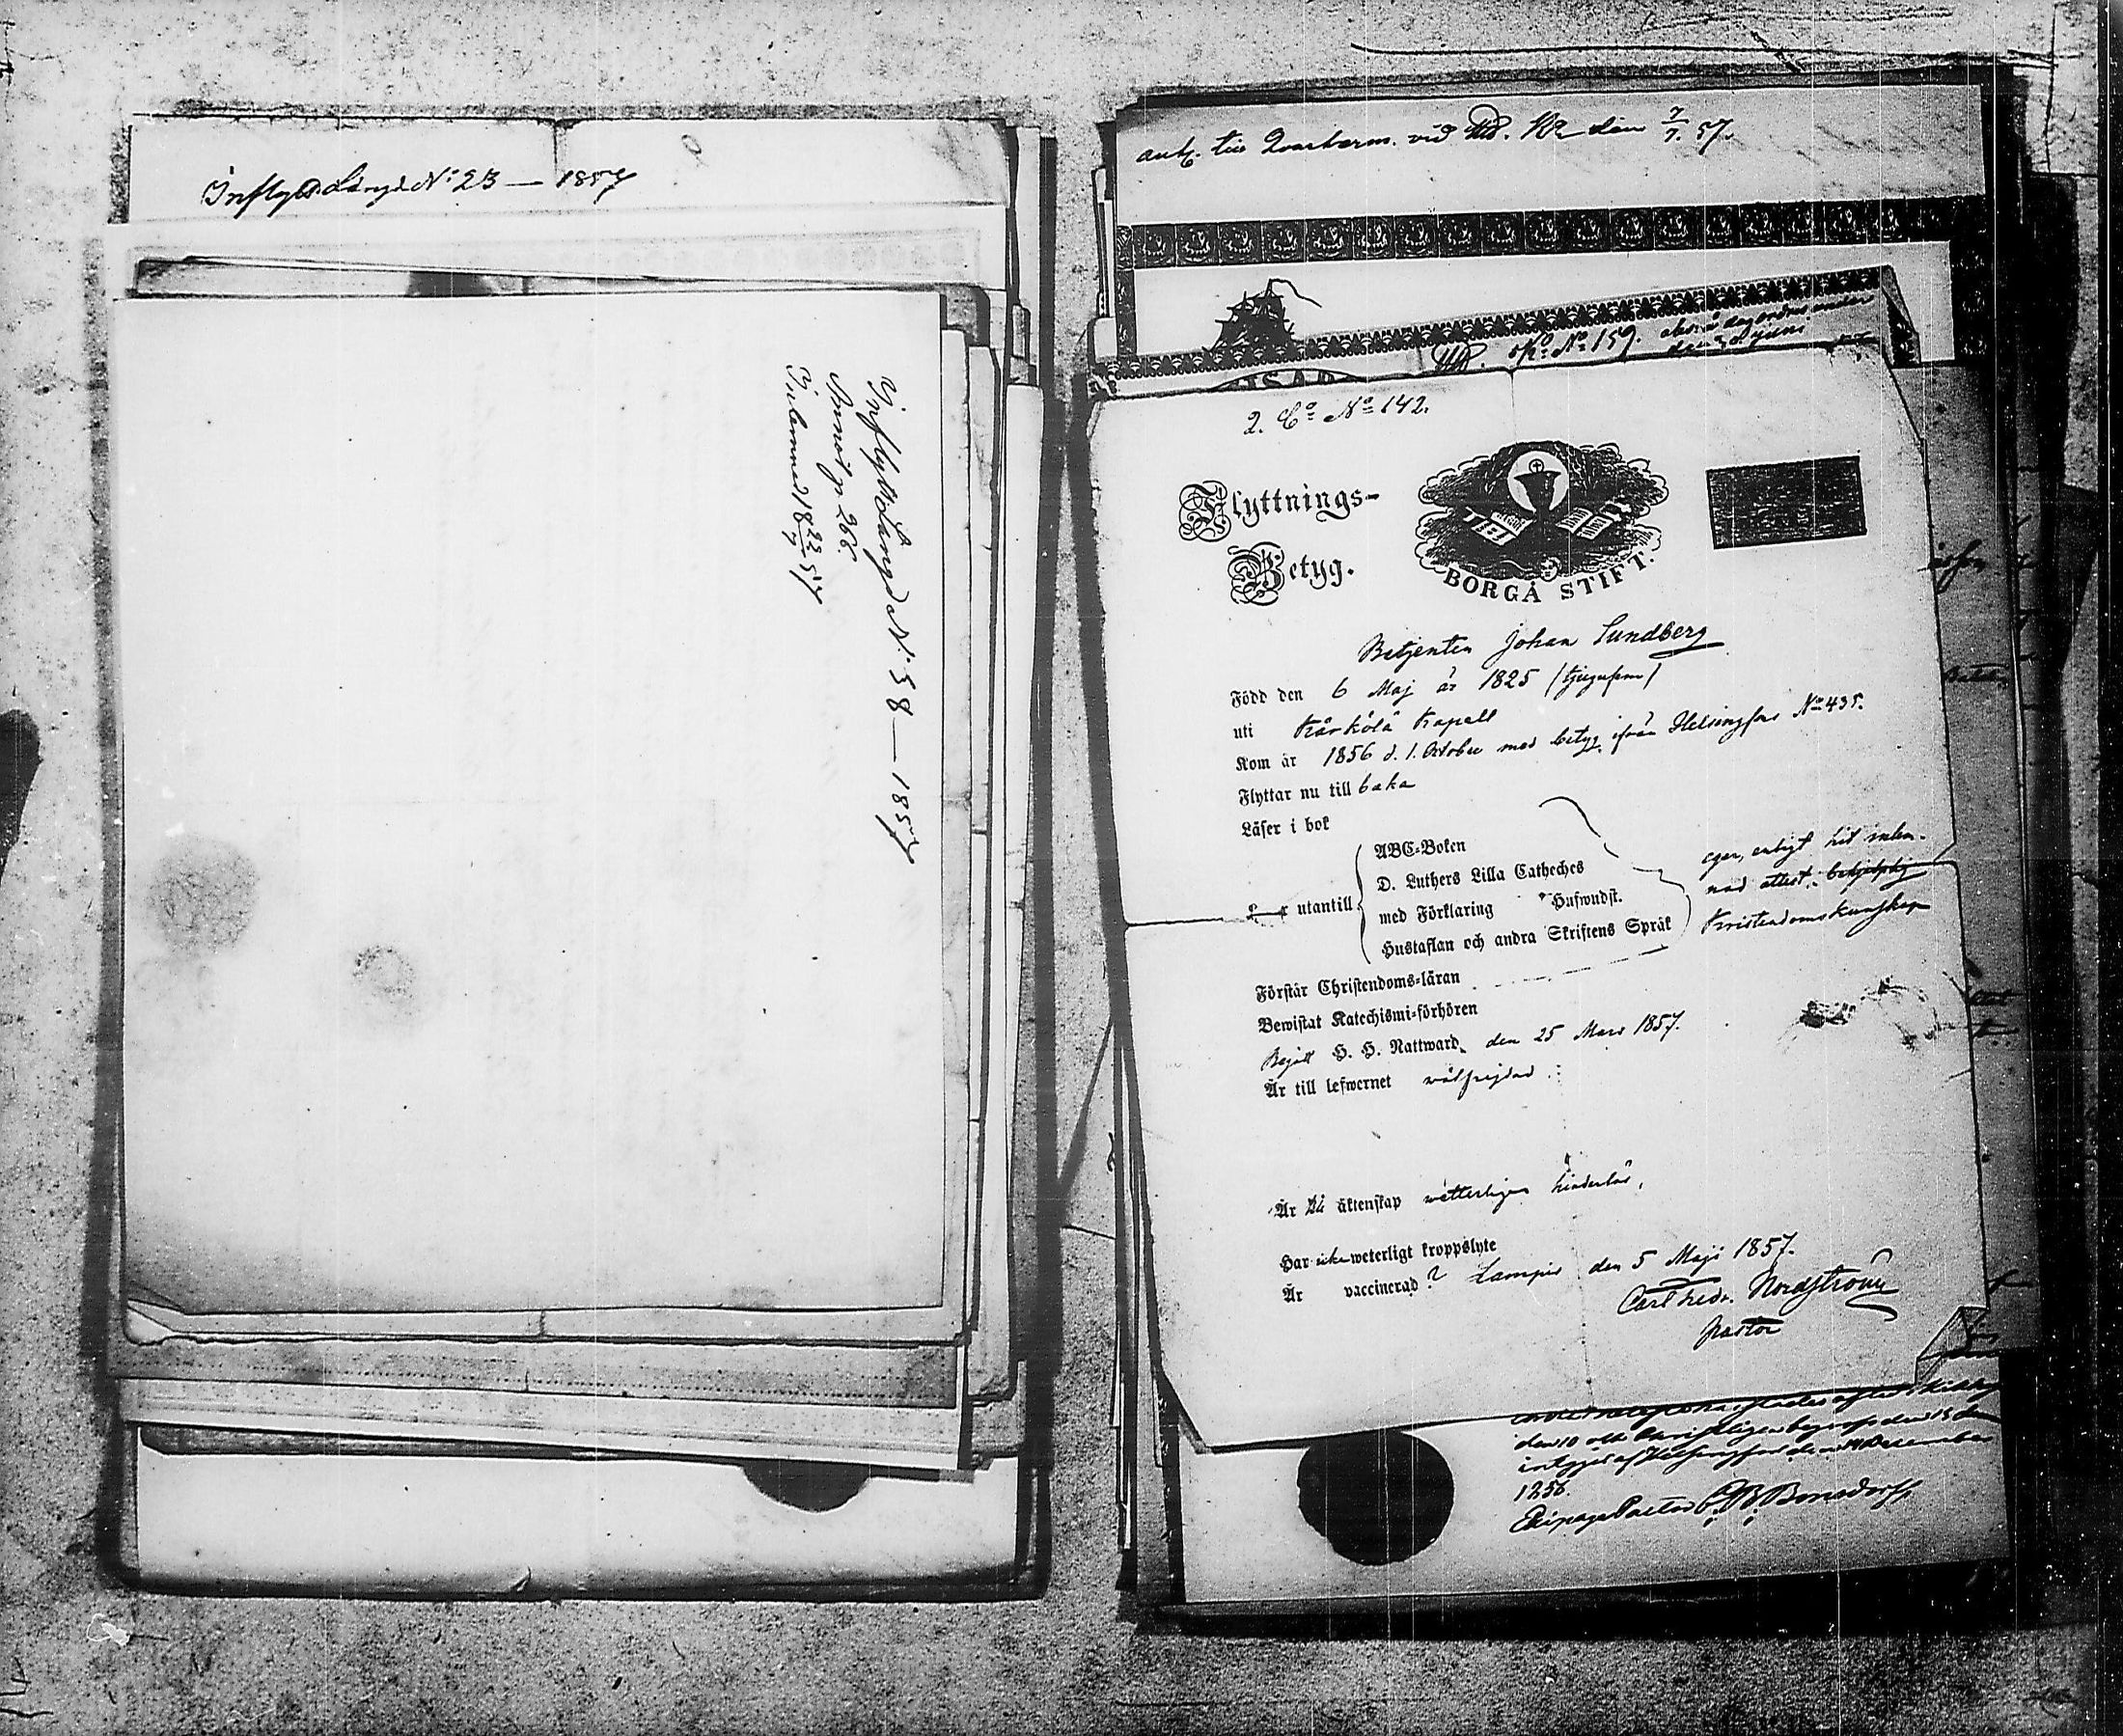 Inflytt. Längd N: 23 — 1857
Inflyttn. Längd N: 58 — 1857
p. 268.
Inlemnad 18 22/7 57
den 7/7. 57.
N:o 159.
2. C:o N:o 142.
Flyttnings-
Betyg.
BORGÅ STIFT.
Betjenten Johan Lundberg
Född den 6 Maj år 1825 (tjugufem)
uti Kärkölä Kapell
Kom år 1856 d. 1. October med betyg ifrån Helsingfors No 435.
Flyttar nu till baka
Läser i bok
utantill
ABC-Boken
D. Luthers Lilla Catheches
med Förklaring Hufwudst.
Hustaflan och andra Skriftens Språk
eger, enligt hit inlem-
nad attest,
Kristendomskunskap
Förstår Christendoms-läran
Bewistat Katechismi-förhören
Begått H. H. Nattward den 25 Mars 1857.
Är till lefwernet välfrejdad
Är till äktenskap wetterligen hinderlös,
Har icke weterligt kroppslyte
Är vaccinerad? Lampis den 5 Maji 1857.
Carl Fredr. Nordström
Pastor
den 10 och
intygar af Helsingfors den 14 December
1856.
Ekipage Pastor C. B. Bonsdorff